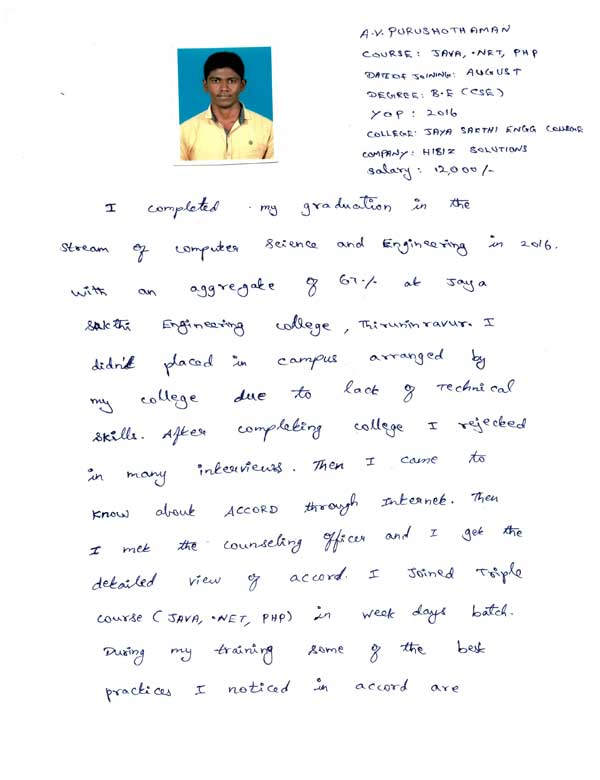 A.V. PURUSHOTHAMAN
COURSE: JAVA, .NET, PHP
DATE OF JOINING: AUGUST
DEGREE: B.E (CSE)
YOP : 2016
COLLEGE: JAYA SAKTHI ENGG COLLEGE
COMPANY: HIBIZ SOLUTIONS
Salary : 12,000/-
I completed my graduation in the
stream of computer science and Engineering in 2016.
with an aggregate of 67.% at Jaya
Sakthi Engineering college, Thiruninravur. I
didn't placed in campus arranged by
my college due to lack of Technical
skills. After completing college I rejected
in many interviews. Then I came to
know about ACCORD through Internet. Then
I met the counseling officer and I get the
detailed view of accord. I Joined Triple
course (JAVA, .NET, PHP) in week days batch.
During my training some of the best
practices I noticed in accord are